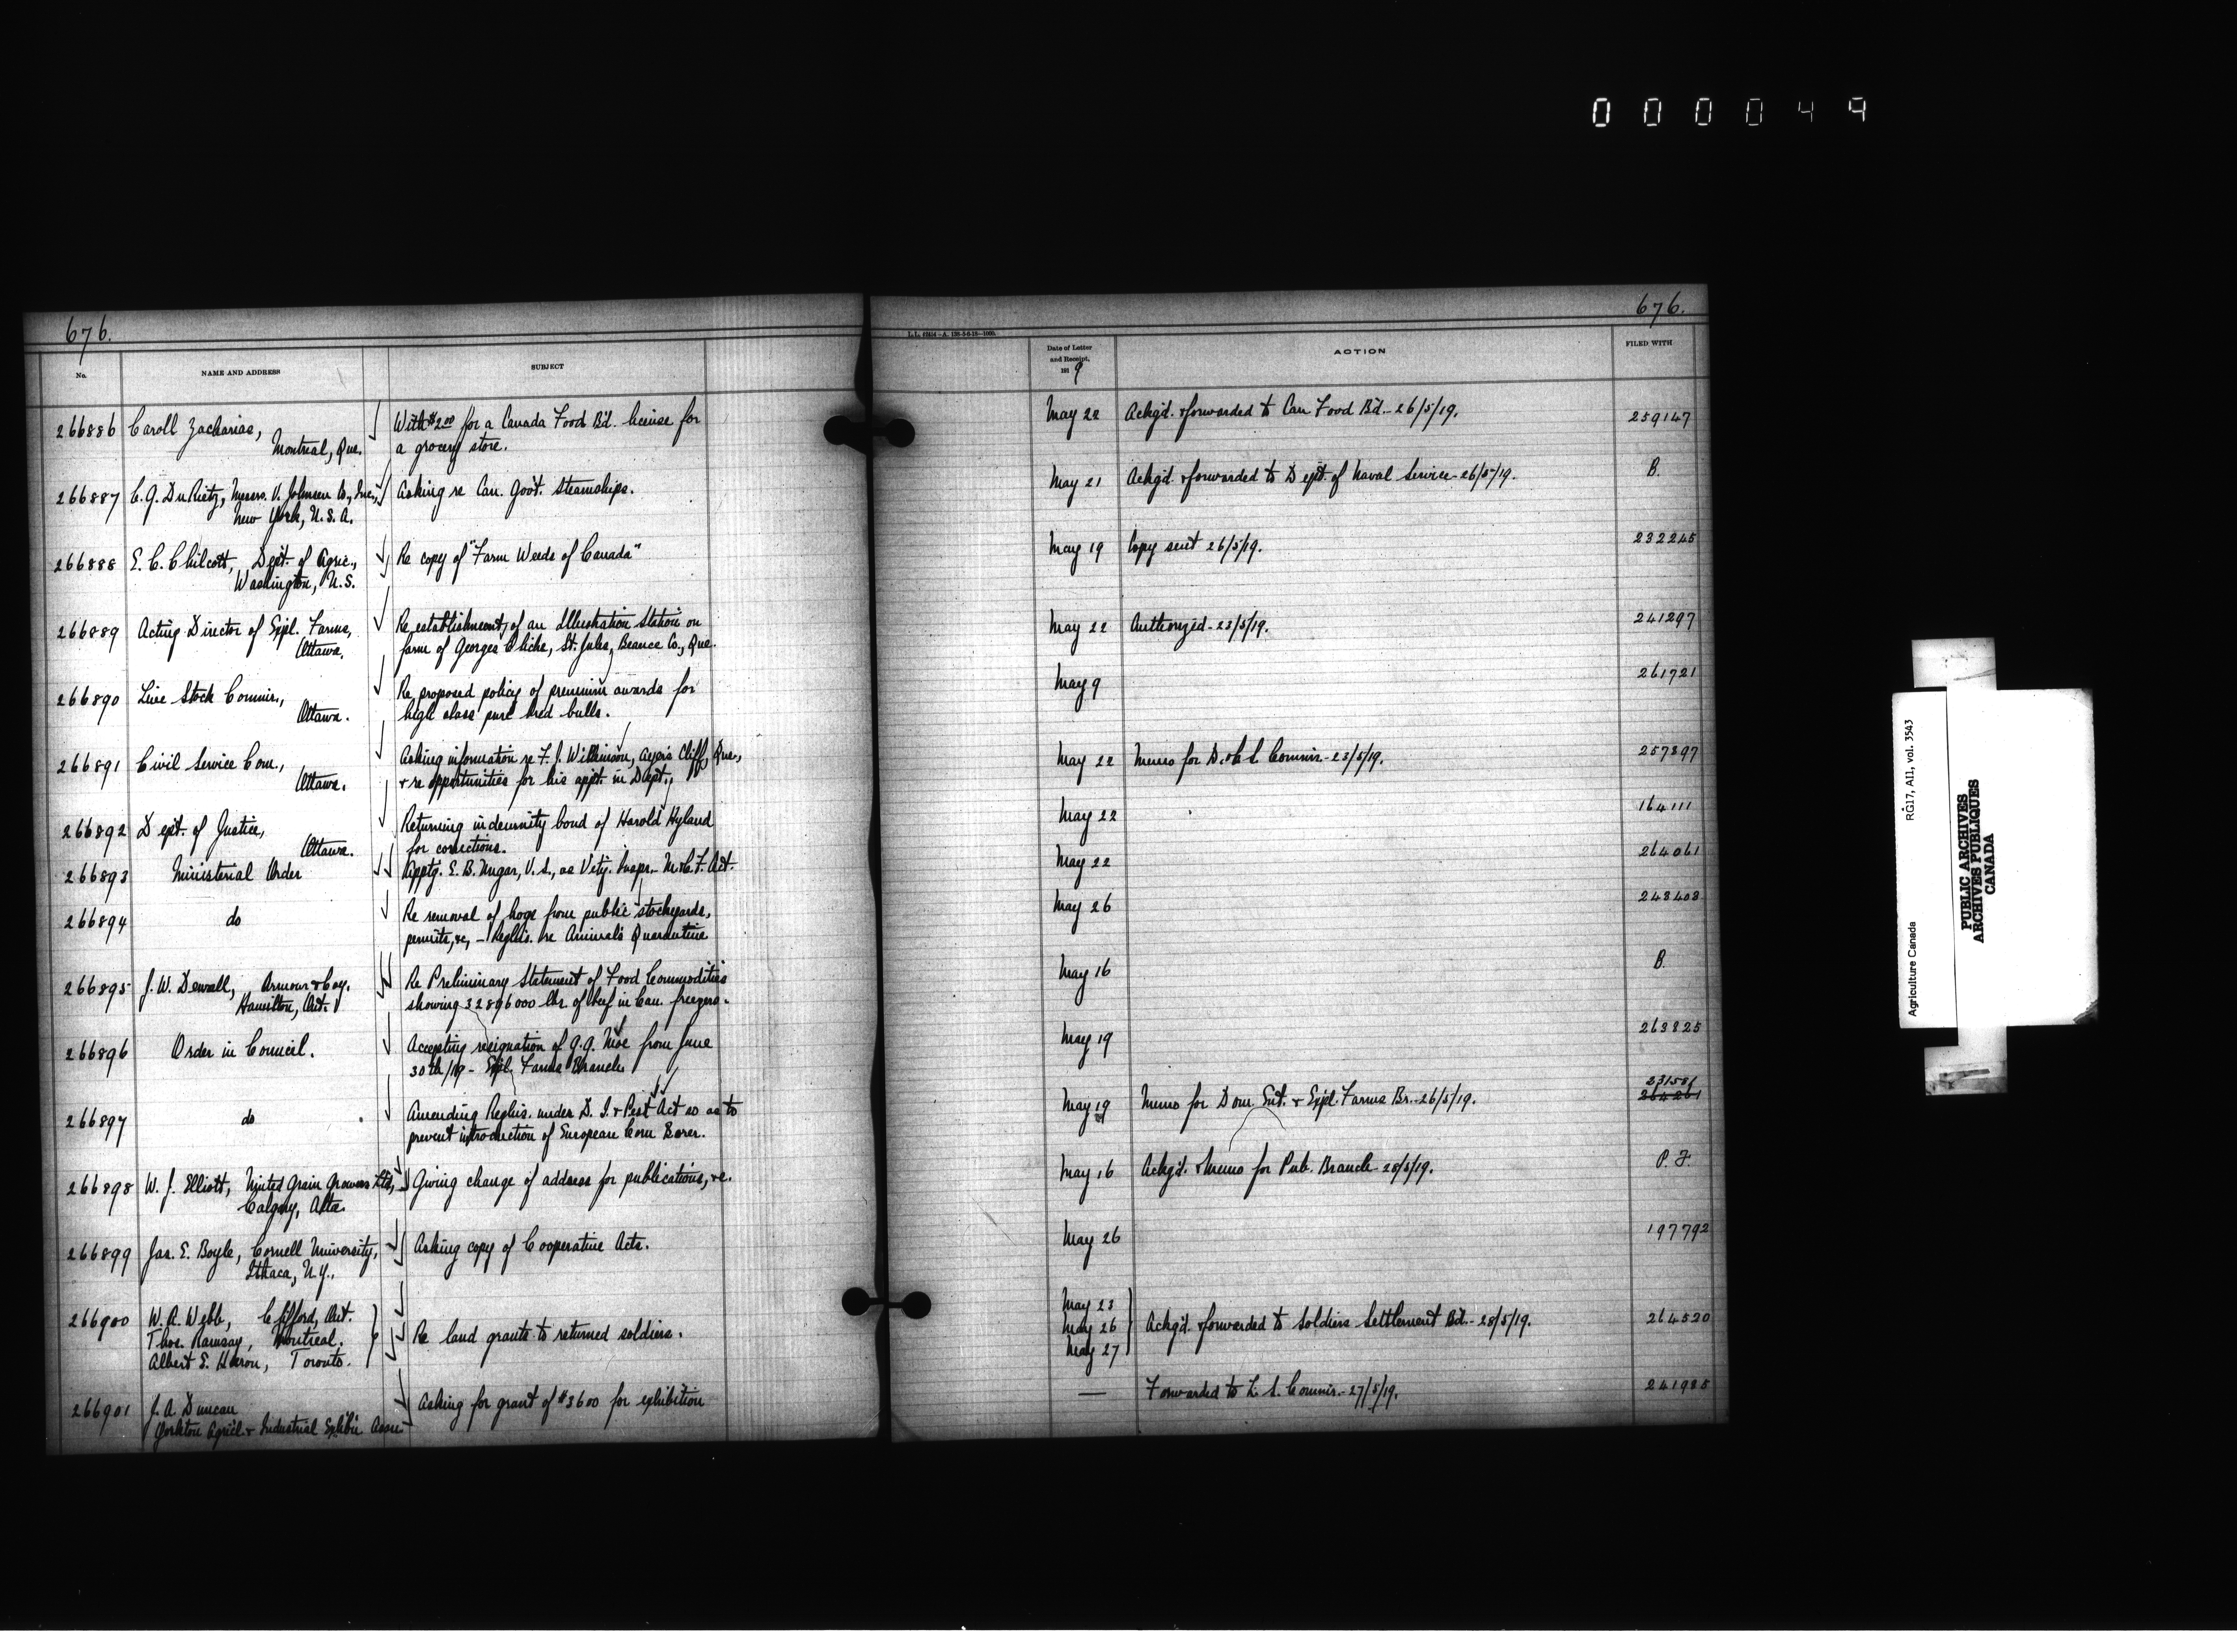 000049
676.
No.
NAME AND ADDRESS
SUBJECT
266886 Caroll Zacharias,
Montreal, Que.
With $2.00 for a Canada Food Bd. license for
a grocery store.
266887 C.G. DuRietz, Messrs. V. Johnson Co., Inc.,
New York, U.S.A.
Asking re Can. Govt. steamships.
266888 E.C. Chilcott, Dept. of Agric.,
Washington, U.S.
Re copy of "Farm Weeds of Canada"
266889 Acting Director of Expl. Farms,
Ottawa.
Re establishment of an Illustration Station on
farm of Georges Cliche, St. Jules, Beauce Co., Que.
266890 Live Stock Commr.,
Ottawa.
Re proposed policy of premium awards for
high class pure bred bulls.
266891 Civil Service Com.,
Ottawa.
Asking information re F.J. Wilkinson, Ayers Cliff, Que.,
& re opportunities for his appt. in Dept.,
266892 Dept. of Justice,
Ottawa.
Returning indemnity bond of Harold Hyland
for corrections.
266893 Ministerial Order
Apptg. E.B. Nugar, V.S., as Vety. Inspr. - M. & C.F. Act.
266894 do
Re removal of hogs from public stockyards,
permits, &c, - Reglns. re Animals Quarantine
266895 J.W. Dewall, Armour & Coy.
Hamilton, Ont.
Re Preliminary Statement of Food Commodities
showing 32896000 lbs. of beef in Can. freezers.
266896 Order in Council.
Accepting resignation of G.G. Moe from June
30th/19 - Expl. Farms Branch.
266897 do
Amending Reglns. under D. I. & Pest Act so as to
prevent introduction of European Corn Borer.
266898 W.J. Elliott, United Grain Growers Ltd.,
Calgary, Alta.
Giving change of address for publications, &c.
266899 Jas. E. Boyle, Cornell University,
Ithaca, N.Y.,
Asking copy of Cooperative Acts.
266900 W.R. Webb, Clifford, Ont.
Thos. Ramsay, Montreal.
Albert E. Heron, Toronto.
Re land grants to returned soldiers.
266901 J.A. Duncan
Yorkton Agricl. & Industrial Exhibn Assn
Asking for grant of $3600 for exhibition
676.
Date of Letter
and Receipt,
1919
ACTION
FILED WITH
May 22 Ackg'd. & forwarded to Can Food Bd. - 26/5/19. 259147
May 21 Ackg'd. & forwarded to Dept. of Naval Service - 26/5/19. B.
May 19 Copy sent 26/5/19. 232245
May 22 Authorized - 23/5/19. 241297
May 9 261721
May 22 Memo for D. & C.S. Commr. - 23/5/19. 257897
May 22 164111
May 22 264061
May 26 243403
May 16 B.
May 19 263825
231581
May 19 Memo for Dom. Ent. & Expl. Farms Br. - 26/5/19. 264261
May 16 Ackg'd. & Memo for Pub. Branch - 28/5/19. P.F.
May 26 197792
May 23
May 26 Ackg'd. & forwarded to Soldiers Settlement Bd. - 28/5/19. 264520
May 27
— Forwarded to L.S. Commr. - 27/5/19. 241985
Agriculture Canada RG17, AII, vol. 3543
PUBLIC ARCHIVES
ARCHIVES PUBLIQUES
CANADA